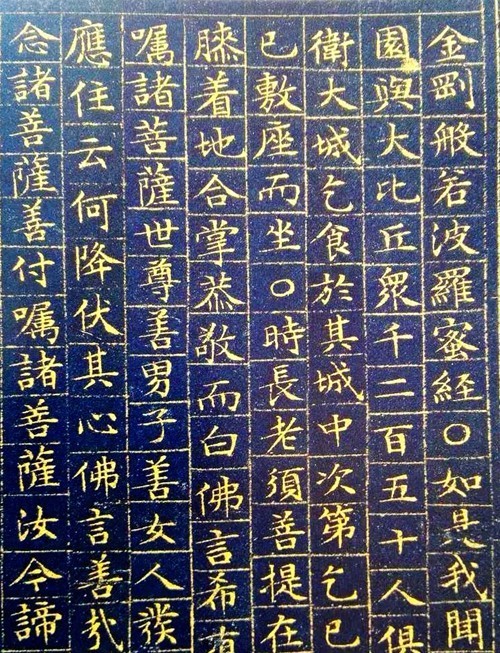 金剛般若波羅蜜經〇如是我聞
園與大比丘眾千二百五十人俱
衛大城乞食於其城中次第乞已
已敷座而坐〇時長老須菩提在
膝着地合掌恭敬而白佛言希有
嘱諸菩薩世尊善男子善女人發
應住云何降伏其心佛言善哉
念諸菩薩善付嘱諸菩薩汝今諦